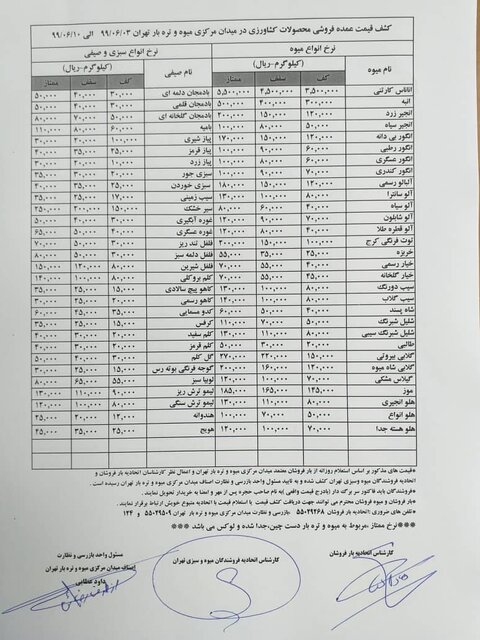 کشف قیمت عمده فروشی محصولات کشاورزی در میدان مرکزی میوه و تره بار تهران ۹۹/۰۶/۰۳ الی ۹۹/۰۶/۱۰
نرخ انواع میوه
(کیلوگرم-ریال)
نرخ انواع سبزی و صیفی
(کیلوگرم-ریال)
نام میوه کف سقف ممتاز نام صیفی کف سقف ممتاز
آناناس کارتنی ۳,۵۰۰,۰۰۰ ۴,۵۰۰,۰۰۰ ۵,۵۰۰,۰۰۰ بادمجان دلمه ای ۳۰,۰۰۰ ۴۰,۰۰۰ ۵۰,۰۰۰
انبه ۳۰۰,۰۰۰ ۴۰۰,۰۰۰ ۵۰۰,۰۰۰ بادمجان قلمی ۳۰,۰۰۰ ۴۰,۰۰۰ ۵۰,۰۰۰
انجیر زرد ۱۲۰,۰۰۰ ۱۵۰,۰۰۰ ۲۰۰,۰۰۰ بادمجان گلخانه ای ۵۰,۰۰۰ ۷۰,۰۰۰ ۸۰,۰۰۰
انجیر سیاه ۵۰,۰۰۰ ۸۰,۰۰۰ بامیه ۶۰,۰۰۰ ۸۰,۰۰۰ ۱۱۰,۰۰۰
انگور بی دانه ۱۲۰,۰۰۰ ۱۵۰,۰۰۰ ۱۷۰,۰۰۰ پیاز شیری
انگور رطبی ۹۰,۰۰۰ پیاز قرمز
انگور عسگری ۶۰,۰۰۰ ۸۰,۰۰۰ ۱۰۰,۰۰۰ پیاز زرد ۱۰,۰۰۰ ۲۰,۰۰۰
انگور کندری ۷۰,۰۰۰ ۹۰,۰۰۰ ۱۰۰,۰۰۰ سبزی جور ۲۵,۰۰۰
آلبالو رسمی ۱۲۰,۰۰۰ ۱۵۰,۰۰۰ ۱۸۰,۰۰۰ سبزی خوردن ۲۵,۰۰۰ ۳۵,۰۰۰ ۴۰,۰۰۰
آلو سانترا ۸۰,۰۰۰ ۱۰۰,۰۰۰ سیب زمینی ۱۷,۰۰۰ ۲۵,۰۰۰ ۳۵,۰۰۰
آلو سیاه ۴۰,۰۰۰ ۶۰,۰۰۰ ۸۰,۰۰۰ سیر خشک ۱۵۰,۰۰۰ ۲۰۰,۰۰۰ ۲۵۰,۰۰۰
آلو شابلون ۷۰,۰۰۰ ۹۰,۰۰۰ ۱۲۰,۰۰۰ غوره آبگیری ۳۰,۰۰۰ ۴۰,۰۰۰ ۵۰,۰۰۰
آلو قطره طلا ۴۰,۰۰۰ ۸۰,۰۰۰ ۱۲۰,۰۰۰ غوره عسگری ۴۰,۰۰۰ ۵۰,۰۰۰ ۶۵,۰۰۰
توت فرنگی کرج ۱۰۰,۰۰۰ ۱۵۰,۰۰۰ ۲۰۰,۰۰۰ فلفل تند ریز ۳۰,۰۰۰ ۵۰,۰۰۰ ۷۰,۰۰۰
خربزه ۲۵,۰۰۰ ۳۵,۰۰۰ ۵۵,۰۰۰ فلفل دلمه سبز ۳۰,۰۰۰ ۵۰,۰۰۰ ۸۰,۰۰۰
خیار رسمی ۴۰,۰۰۰ ۵۵,۰۰۰ ۷۰,۰۰۰ فلفل شیرین ۸۰,۰۰۰ ۱۲۰,۰۰۰ ۱۵۰,۰۰۰
خیار گلخانه ۴۵,۰۰۰ ۵۵,۰۰۰ ۷۰,۰۰۰ کلم بروکلی ۸۰,۰۰۰ ۱۰۰,۰۰۰ ۱۴۰,۰۰۰
سیب دورنگ ۸۰,۰۰۰ ۱۰۰,۰۰۰ ۱۳۰,۰۰۰ کاهو پیچ سالادی ۲۵,۰۰۰ ۳۵,۰۰۰ ۴۰,۰۰۰
سیب گلاب ۸۰,۰۰۰ ۱۰۰,۰۰۰ ۱۲۰,۰۰۰ کاهو رسمی ۲۰,۰۰۰ ۲۵,۰۰۰ ۳۰,۰۰۰
شاه پسند ۴۰,۰۰۰ کدو مسمایی ۳۰,۰۰۰ ۴۵,۰۰۰ ۶۰,۰۰۰
شلیل شبرنگ ۵۰,۰۰۰ ۷۰,۰۰۰ ۱۰۰,۰۰۰ کرفس ۱۵,۰۰۰ ۲۵,۰۰۰ ۳۵,۰۰۰
شلیل شبرنگ سیبی ۸۰,۰۰۰ ۱۱۰,۰۰۰ ۱۳۰,۰۰۰ کلم سفید ۲۰,۰۰۰ ۳۰,۰۰۰ ۴۰,۰۰۰
طالبی ۲۰,۰۰۰ ۳۰,۰۰۰ کلم قرمز ۲۰,۰۰۰ ۳۰,۰۰۰ ۴۰,۰۰۰
گلابی بیروتی ۱۵۰,۰۰۰ ۲۲۰,۰۰۰ ۲۷۰,۰۰۰ گل کلم ۳۰,۰۰۰ ۴۰,۰۰۰ ۵۰,۰۰۰
گلابی شاه میوه ۱۲۰,۰۰۰ ۱۶۰,۰۰۰ ۲۰۰,۰۰۰ گوجه فرنگی بوته رس ۱۵,۰۰۰ ۲۵,۰۰۰ ۳۰,۰۰۰
گیلاس مشکی ۷۰,۰۰۰ ۱۰۰,۰۰۰ ۱۲۰,۰۰۰ لوبیا سبز ۵۵,۰۰۰ ۶۵,۰۰۰ ۸۰,۰۰۰
موز ۱۴۵,۰۰۰ ۱۶۵,۰۰۰ ۱۸۵,۰۰۰ لیمو ترش ریز ۹۰,۰۰۰ ۱۱۰,۰۰۰ ۱۳۰,۰۰۰
هلو انجیری ۸۰,۰۰۰ ۱۱۰,۰۰۰ ۱۳۰,۰۰۰ لیمو ترش سنگی ۸۰,۰۰۰ ۱۰۰,۰۰۰ ۱۲۰,۰۰۰
هلو انواع ۵۰,۰۰۰ ۷۰,۰۰۰ ۱۰۰,۰۰۰ هندوانه ۱۲,۰۰۰ ۲۰,۰۰۰ ۲۵,۰۰۰
هلو هسته جدا ۷۰,۰۰۰ ۱۰۰,۰۰۰ ۱۲۰,۰۰۰ هویج ۲۵,۰۰۰ ۳۵,۰۰۰ ۴۵,۰۰۰
*قیمت های مذکور بر اساس استعلام روزانه از بار فروشان معتمد میدان مرکزی میوه و تره بار تهران و اعمال نظر کارشناسان اتحادیه بار فروشان و
اتحادیه فروشندگان میوه وسبزی تهران کشف شده و به تایید مسئول واحد بازرسی و نظارت اصناف میدان مرکزی میوه و تره بار تهران رسیده است.
*فروشندگان باید فاکتور سر برگ دار (بادرج قیمت واقعی )به نام صاحب حجره پس از مهر و امضا به خریدار تحویل نمایند.
*بار فروشان و میوه فروشان محترم می توانند جهت دریافت کشف قیمت یا استعلام قیمت با اتحادیه متبوع خویش ارتباط برقرار نمایند.
*تلفن های ضروری :اتحادیه بار فروشان ۵۵۰۲۹۲۶۸ - بازرسی و نظارت میدان مرکزی میوه و تره بار تهران ۵۵۰۲۹۵۰۹ و ۱۲۴
***نرخ ممتاز ،مربوط به میوه و تره بار دست چین،جدا شده و لوکس می باشد ***
کارشناس اتحادیه بار فروشان
کارشناس اتحادیه فروشندگان میوه و سبزی تهران
مسئول واحد بازرسی و نظارت
اصناف میدان مرکزی میوه و تره بار تهران
داود عطایی